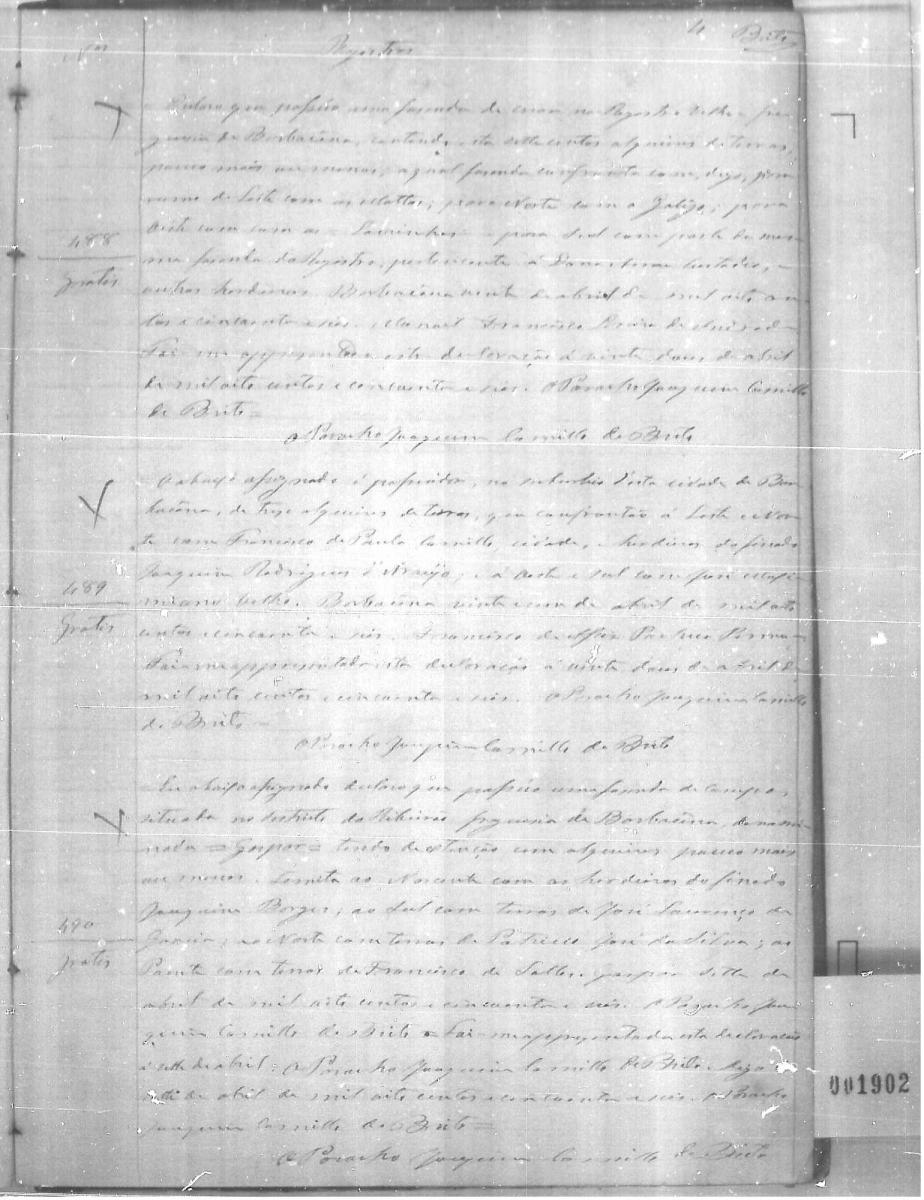 Nos
Registros
4 Brito
Declaro que possúo uma fasenda de criar no Registro Velho fre
guesia de Barbacena, contendo sette centos alqueires de terras,
pouco mais ou menos, a qual fasenda confronta com, digo, pelo
rumo de Leste com os Mattos, para Norte com o Galego, para
Oeste com com os para Sul com parte da mes
488
ma fasenda do Registro, pertencente á Dona e
gratis
outros herdeiros. Barbacena vinte de abril de mil oito cen
tos e cincoenta e seis. Manoel Francisco
Foi-me appresentada esta declaração á vinte dous de abril
de mil oito centos e cincoenta e seis. O Parocho Joaquim Camillo
de Brito =
O Parocho Joaquim Camillo de Brito
O abaixo assignado é possuidor, no suburbio d'esta cidade de Bar
bacena, de trese alqueires de terras, que confrontão á Leste e Nor
te com Francisco de Paula Camillo, cidade, e herdeiros do finado
Joaquim Rodrigues d'Araujo, e á Oeste e Sul com José Maxi
489
miano Velho. Barbacena vinte e um de abril de mil oito
gratis
centos e cincoenta e seis. Francisco de Assis Pacheco
Foi-me appresentada esta declaração á vinte dous de abril de
mil oito centos e cincoenta e seis. O Parocho Joaquim Camillo
de Brito =
O Parocho Joaquim Camillo de Brito
Eu abaixo assignado declaro que possúo uma fasenda de campos,
situada no destricto do Ribeirão freguesia de Barbacena, denomi
nada = Gaspar = tendo de extenção cem alqueires pouco mais
ou menos. Limita ao Nascente com os herdeiros do finado
Joaquim Borges, ao Sul com terras de José Lourenço da
490
Garcia, ao Norte com terras de Patricio José da Silva; ao
gratis
Poente com terras de Francisco de Salles. Gaspar sette de
abril de mil oito centos e cincoenta e seis. O Parocho Joa
quim Camillo de Brito = Foi-me appresentada esta declaração
á sette de abril; O Parocho Joaquim Camillo de Brito. Digo
de abril de mil oito centos e cincoenta e seis. O Parocho
Joaquim Camillo de Brito =
O Parocho Joaquim Camillo de Brito
001902